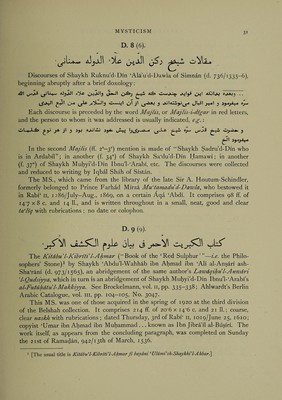 MYSTICISM
31
D. 8 (6).
مقالات شیخ رکن الدین علاء الدوله سمنانی
Discourses of Shaykh Ruknu'd-Dín 'Alá'u'd-Dawla of Simnán (d. 736/1335-6),
beginning abruptly after a brief doxology:
Each discourse is preceded by the word Majlis, or Majlis-i-dígar in red letters,
and the person to whom it was addressed is usually indicated, e.g.:
In the second Majlis (ff. 2ᵃ–3ᵃ) mention is made of "Shaykh Ṣadru'd-Dín who
is in Ardabíl"; in another (f. 34ᵃ) of Shaykh Sa'du'd-Dín Ḥamawí; in another
(f. 37ᵃ) of Shaykh Muḥyi'd-Dín Ibnu'l-'Arabí, etc. The discourses were collected
and reduced to writing by Iqbál Shíh of Sístán.
The MS., which came from the library of the late Sir A. Houtum-Schindler,
formerly belonged to Prince Farhád Mírzá Mu'tamadu'd-Dawla, who bestowed it
in Rabí' II, 1286/July–Aug., 1869, on a certain Áqá 'Abdí. It comprises 98 ff. of
14·7 × 8 c. and 14 ll., and is written throughout in a small, neat, good and clear
ta'líq with rubrications; no date or colophon.
D. 9 (9).
كتاب الكبريت الأحمر فى بيان علوم الكشف الأكبر
The Kitábu'l-Kibríti'l-Aḥmar ("Book of the 'Red Sulphur'"—i.e. the Philo-
sophers' Stone)¹ by Shaykh 'Abdu'l-Wahháb ibn Aḥmad ibn 'Alí al-Anṣárí ash-
Sha'rání (d. 973/1565), an abridgement of the same author's Lawáqiḥu'l-Anwári
'l-Qudsiyya, which in turn is an abridgement of Shaykh Muḥyi'd-Dín Ibnu'l-'Arabí's
al-Futúḥátu'l-Makkiyya. See Brockelmann, vol. II, pp. 335–338; Ahlwardt's Berlin
Arabic Catalogue, vol. III, pp. 104–105, No. 3047.
This MS. was one of those acquired in the spring of 1920 at the third division
of the Belshah collection. It comprises 214 ff. of 20·6 × 14·6 c. and 21 ll.; coarse,
clear naskh with rubrications; dated Thursday, 3rd of Rabí' II, 1019/June 25, 1610;
copyist 'Umar ibn Aḥmad ibn Muḥammad...known as Ibn Jibrá'íl al-Búṣírí. The
work itself, as appears from the concluding paragraph, was completed on Sunday
the 21st of Ramaḍán, 942/13th of March, 1536.
¹ [The usual title is Kitábu'l-Kibríti'l-Aḥmar fí bayáni 'Ulúmi'sh-Shaykhi'l-Akbar.]